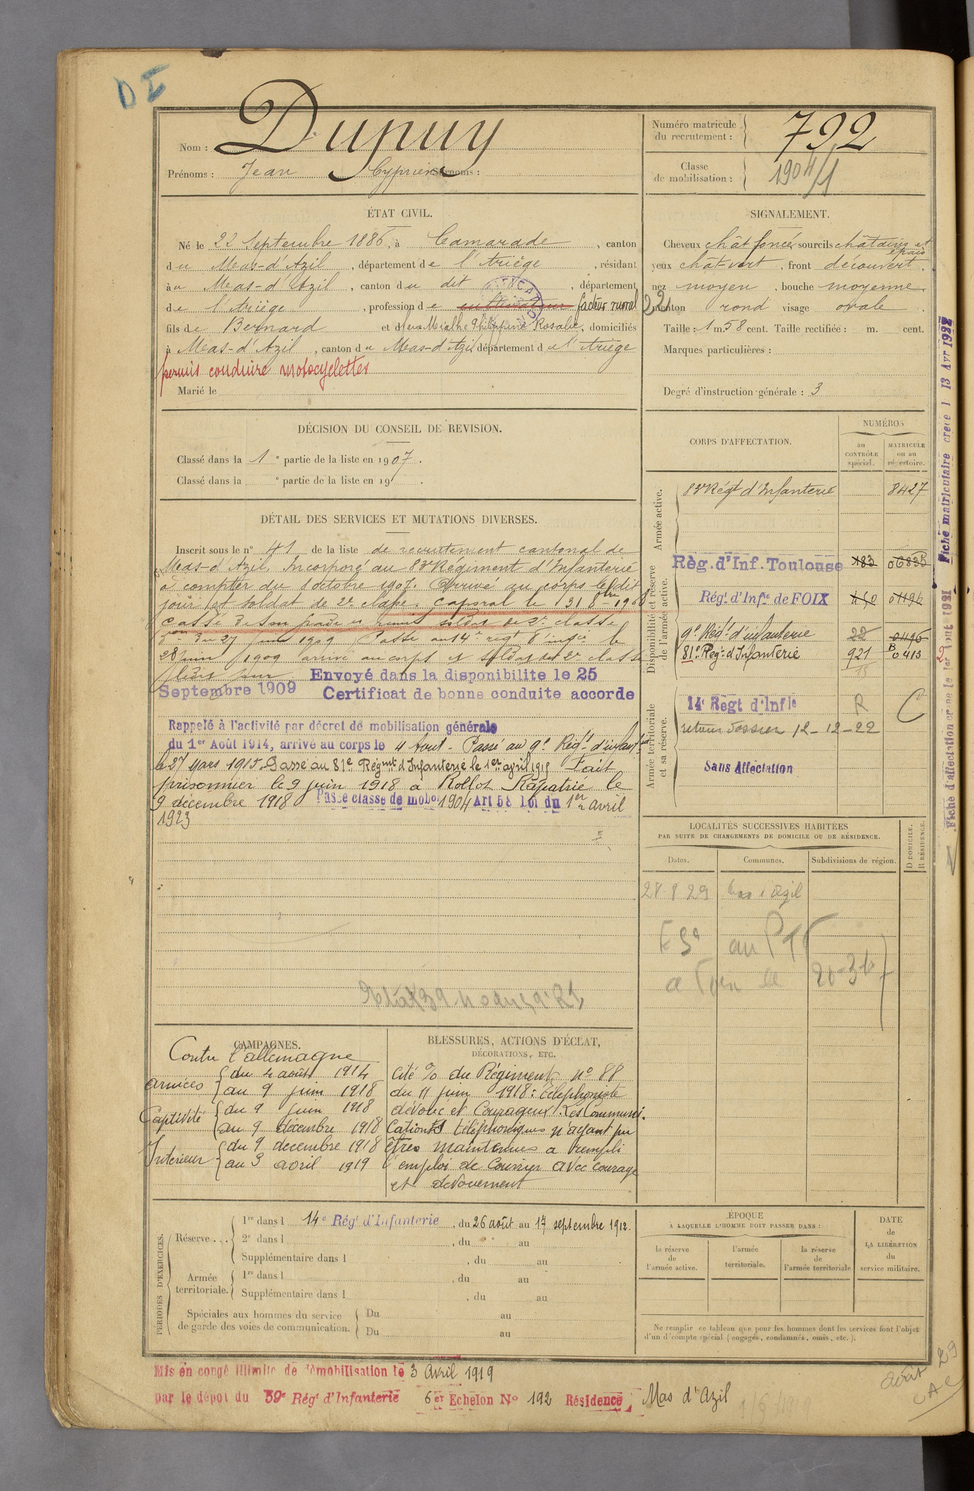 DI
Nom : Dupuy
Prénoms : Jean Cyprien
Numéro matricule du recrutement : 792
Classe de mobilisation : 1904/1
ÉTAT CIVIL.
Né le 22 Septembre 1886, à Camarade, canton
du Mas-d'Azil, département de l'Ariège, résidant
à Mas-d'Azil, canton du dit, département
de l'Ariège, profession de cultivateur facteur rural
fils de Bernard et de Mialhe Philippine Rosalie, domiciliés
à Mas-d'Azil, canton du Mas-d'Azil département de l'Ariège
permis conduire motocyclettes
Marié le
SIGNALEMENT.
Cheveux chât foncé sourcils châtains et épais
yeux chât-vert, front découvert,
nez moyen, bouche moyenne
menton rond visage ovale
Taille : 1 m. 58 cent. Taille rectifiée : m. cent.
Marques particulières :
Degré d'instruction générale : 3
DÉCISION DU CONSEIL DE REVISION.
Classé dans la 1e partie de la liste en 1907.
Classé dans la e partie de la liste en 19 .
DÉTAIL DES SERVICES ET MUTATIONS DIVERSES.
Inscrit sous le n° 41 de la liste de recrutement cantonal de
Mas-d'Azil. Incorporé au 83e Régiment d'Infanterie
à compter du 1 octobre 1907. Arrivé au corps le dit
jour et soldat de 2e classe. Caporal le 13 8bre 1908
Cassé de son grade et remis soldat de 2e classe
du 27 juin 1909 Passé au 14e régt d'infrie le
28 juin 1909 arrivé au corps et soldat de 2e classe
Envoyé dans la disponibilite le 25
Septembre 1909 Certificat de bonne conduite accorde
Rappelé à l'activité par décret de mobilisation générale
du 1er Août 1914, arrivé au corps le 4 Aout - Passé au 9e Régt d'infanterie
le 27 mars 1915. Passé au 81e Régmt d'Infanterie le 1er avril 1915 Fait
prisonnier le 9 juin 1918 à Rollot Rapatrié le
9 décembre 1918 Passé classe de mobon 1904 Art 58 Loi du 1er avril
1923
CORPS D'AFFECTATION.
NUMÉROS
au CONTRÔLE spécial.
MATRICULE ou au répertoire.
Armée active.
83e Régt d'Infanterie 8427
Disponibilité et réserve de l'armée active.
Règ. d'Inf. Toulouse 183
Régt d'Infie de FOIX
9e Régt d'infanterie 22
81e Régt d'Infanterie 921 B 0413
Armée territoriale et sa réserve.
14e Regt d'Infie R C
retenu dossier 12-12-22
Sans Affectation
Fiche matriculaire créée l 13 Avr 1922
LOCALITÉS SUCCESSIVES HABITÉES
PAR SUITE DE CHANGEMENTS DE DOMICILE OU DE RÉSIDENCE.
Dates. Communes. Subdivisions de région. D DOMICILE. R RÉSIDENCE.
28 8 29 Mas d'Azil
CAMPAGNES.
Contre l'allemagne
armées du 4 août 1914
au 9 juin 1918
Captivité du 9 juin 1918
au 9 décembre 1918
Intérieur du 9 decembre 1918
au 3 avril 1919
BLESSURES, ACTIONS D'ÉCLAT,
DÉCORATIONS, ETC.
Cité % du Régiment n° 88
du 11 juin 1918 : téléphoniste
dévoué et courageux. Les Communi-
cations téléphoniques n'ayant pu
êtres maintenues a rempli
l'emploi de coureur avec courage
et dévouement
PÉRIODES D'EXERCICES.
Réserve... 1re dans l 14e Régt d'Infanterie, du 26 août au 17 septembre 1912.
2e dans l , du au
Supplémentaire dans l , du au
Armée territoriale. 1re dans l , du au
Supplémentaire dans l , du au
Spéciales aux hommes du service de garde des voies de communication. Du au
Du au
ÉPOQUE
À LAQUELLE L'HOMME DOIT PASSER DANS :
la réserve de l'armée active.
l'armée territoriale.
la réserve de l'armée territoriale
DATE de LA LIBÉRATION du service militaire.
Ne remplir ce tableau que pour les hommes dont les services font l'objet
d'un décompte spécial (engagés, condamnés, omis, etc.).
Mis en congé illimité de démobilisation le 3 Avril 1919
par le dépôt du 59e Régt d'Infanterie 6er Echelon N° 192 Résidence Mas d'Azil